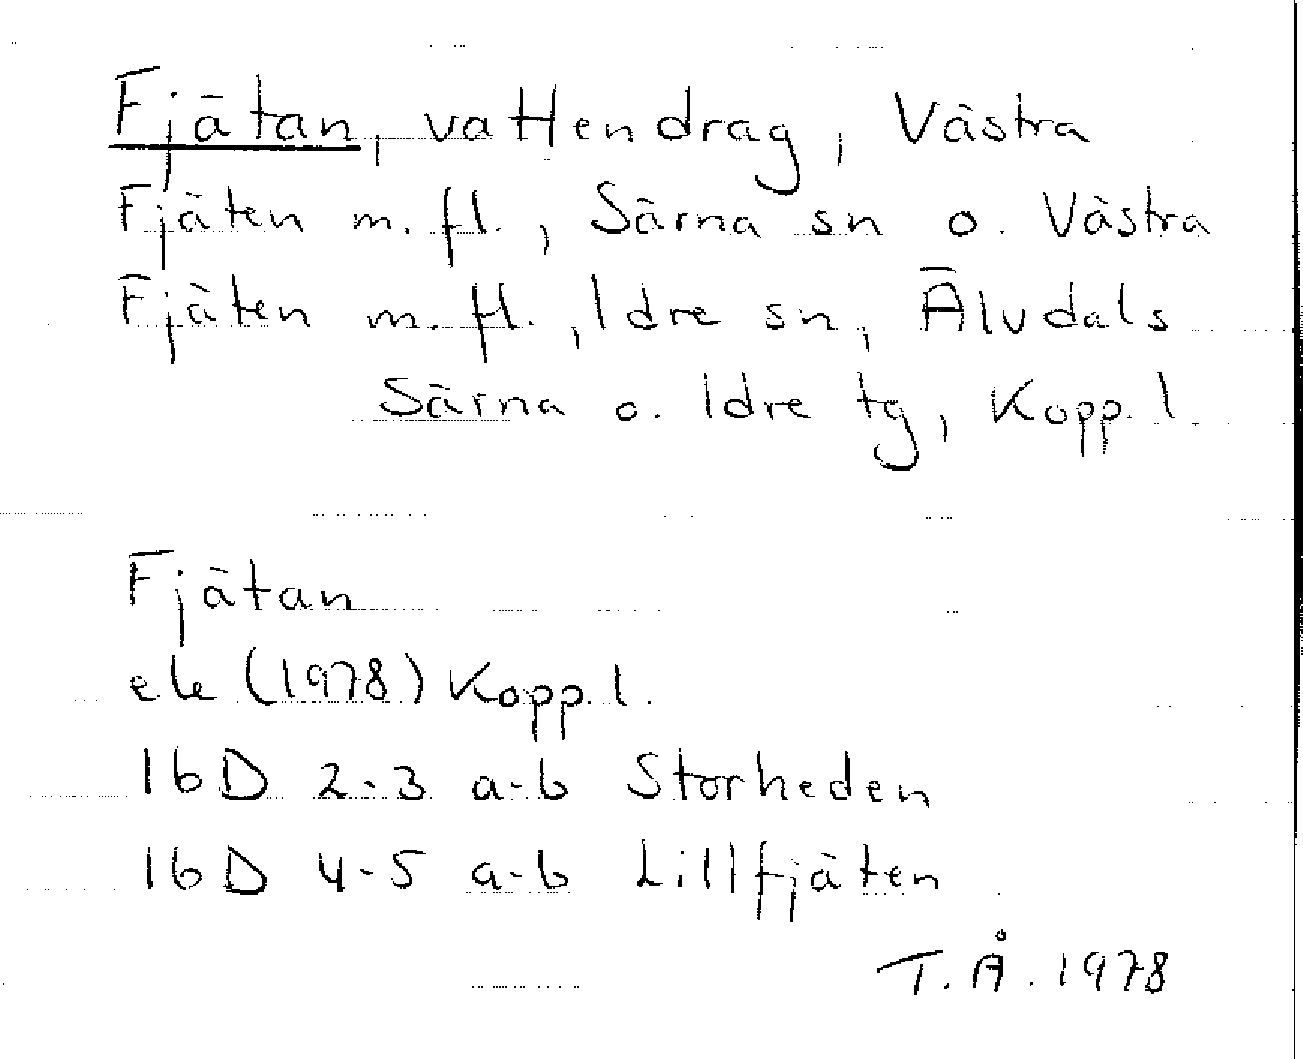 Fjätan, vattendrag, Västra
Fjäten m. fl., Särna sn o. Västra
Fjäten m.fl., Idre sn, Älvdals
Särna o. Idre tg, Kopp. l.
Fjätan
ek (1978) Kopp. l.
16D 2-3 a-b Storheden
16D 4-5 a-b Lillfjäten
T.Å. 1978